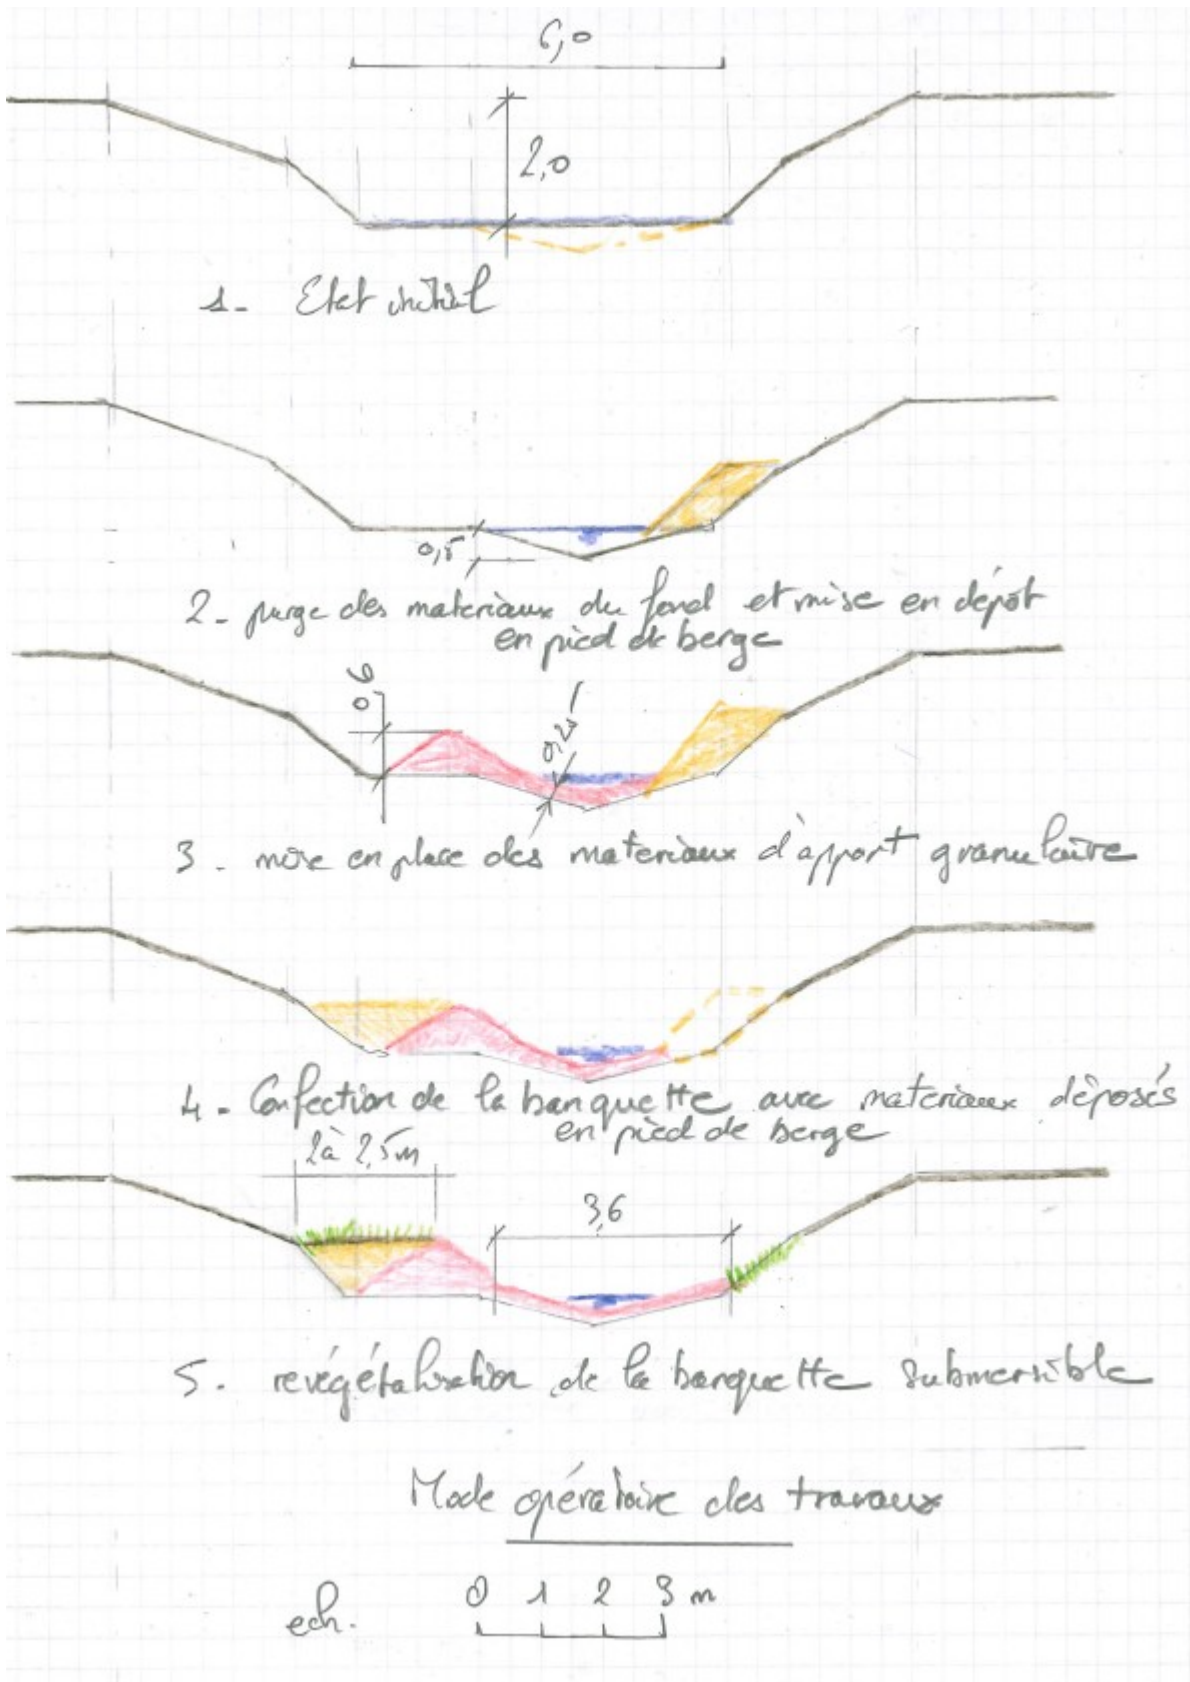 6,0
2,0
1- Etat initial
0,5
2- purge des materiaux du fond et mise en dépôt
en pied de berge
0,6
0,25
3 - mise en place des materiaux d'apport granulaire
4 - Confection de la banquette avec materiaux déposés
en pied de berge
2à 2,5m
3,6
5. revégétalisation de la banquette submersible
Mode opératoire des travaux
ech. 0 1 2 3 m